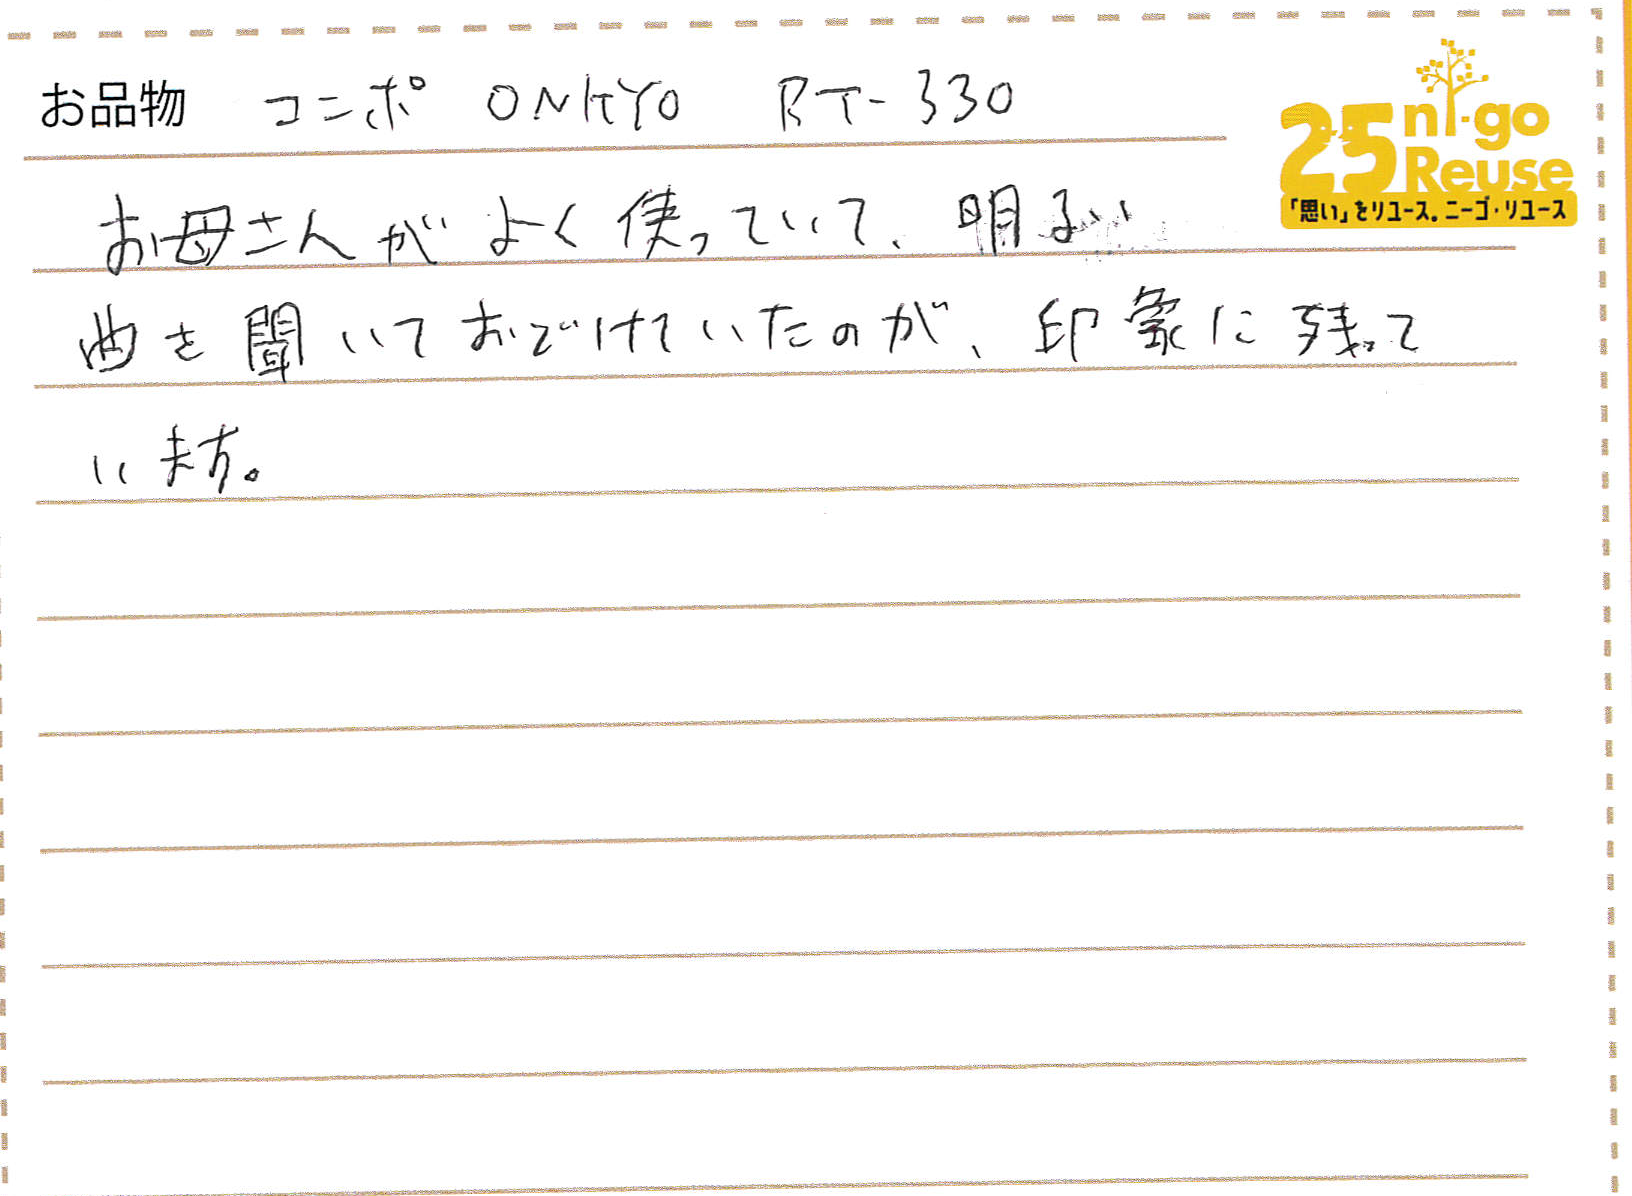 お品物 コンポ ONKYO RT-330
25 ni-go Reuse
「思い」をリユース。ニーゴ・リユース
お母さんがよく使っていて、明るい
曲を聞いておどけていたのが、印象に残って
います。